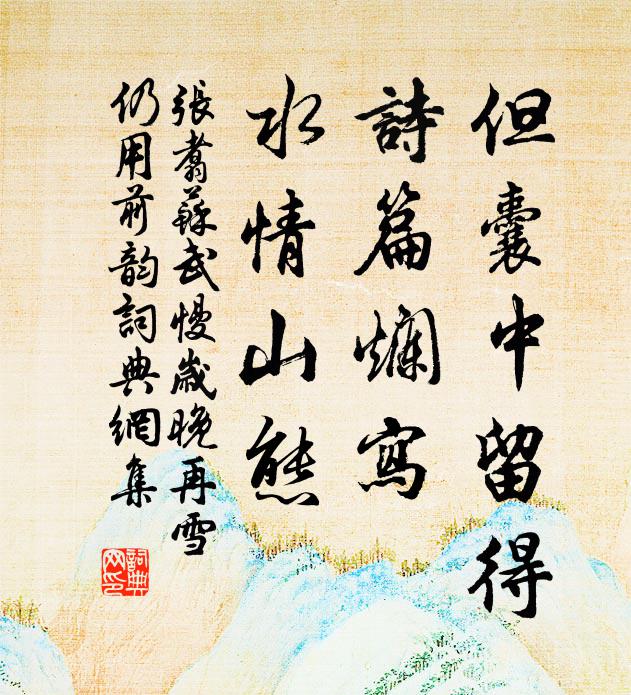 但囊中留得
詩篇爛寫
水情山態
張翥蘇武慢歲晚再雪
仍用前韵詞典網集
詞典
网印